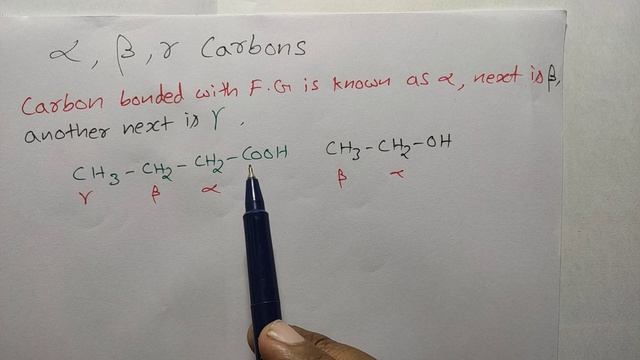 α, β, γ Carbons
Carbon bonded with F.G is known as α, next is β,
another next is γ.
CH₃-CH₂-CH₂-COOH CH₃-CH₂-OH
γ β α β α